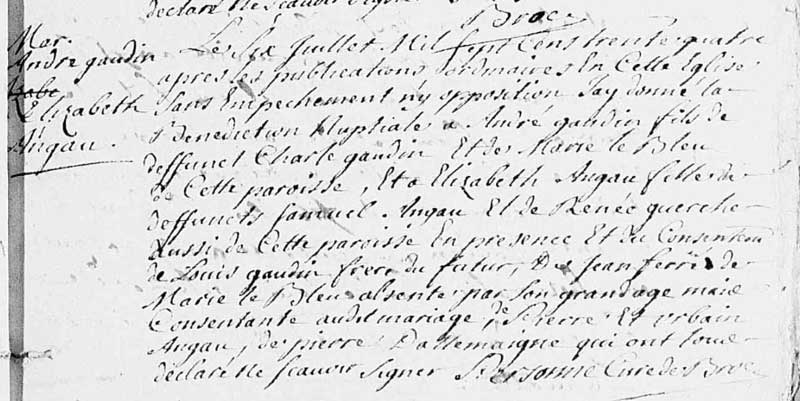 declaré ne scauoir signer
Broc
Mar.
André gaudin
Izabe
Elizabeth
Angau.
Le six Juillet Mil sept Cens trente quatre
apres les publications ordinaires En Cette Eglise
sans Empechement ny opposition Jay donné la
Benediction Nuptiale a André gaudin fils de
deffunct Charle gaudin Et de Marie le Bleu
de Cette paroisse, Et a Elizabeth Angau fille de
deffuncts Samuel Angau Et de Renée querche
aussi de Cette paroisse En presence Et du Consentem
de Louis gaudin frere du futur, De Jean ferré de
Marie le Bleu absente par son grand age mais
Consentante audit mariage, de Pierre Et Urbain
Angau, de pierre Dallemaigne qui ont tous
declaré Ne scauoir signer Personne Curé de Broc